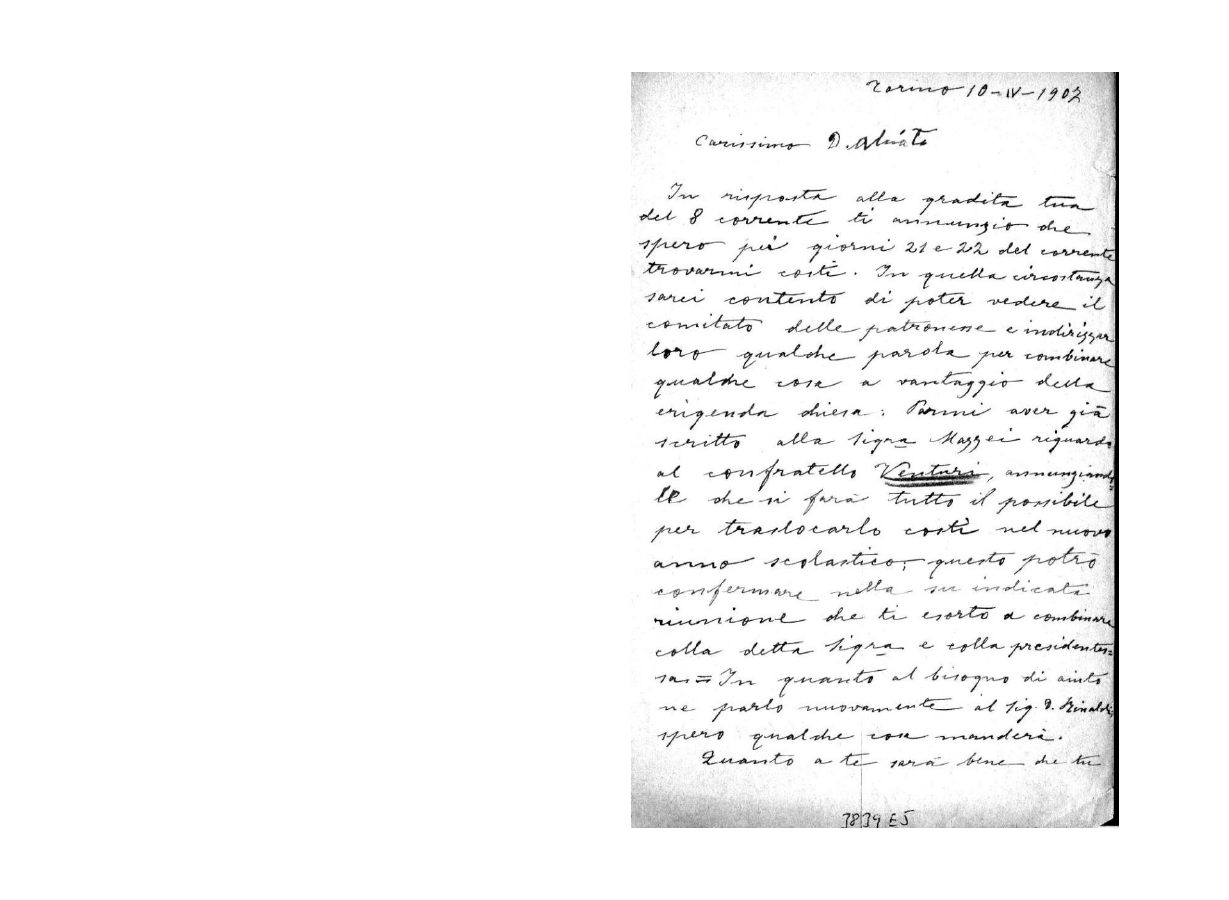 Torino 10-IV-1902
Carissimo D.
In risposta alla gradita tua
del 8 corrente ti annunzio che
spero pei giorni 21 e 22 del corrente
trovarmi costì. In quella circostanza
sarei contento di poter vedere il
comitato delle patronesse e indirizzar
loro qualche parola per combinare
qualche cosa a vantaggio della
erigenda chiesa: Parmi aver già
scritto alla Sigra Mazzei riguardo
al confratello Venturi, annunziando=
le che si farà tutto il possibile
per traslocarlo costì nel nuovo
anno scolastico; questo potrò
confermare nella su indicata
riunione che ti esorto a combinare
colla detta Sigra e colla presidentes=
sa = In quanto al bisogno di aiuto
ne parlo nuovamente al Sig. D. Rinaldi,
spero qualche cosa manderà.
Quanto a te sarà bene che tu
3839 E5